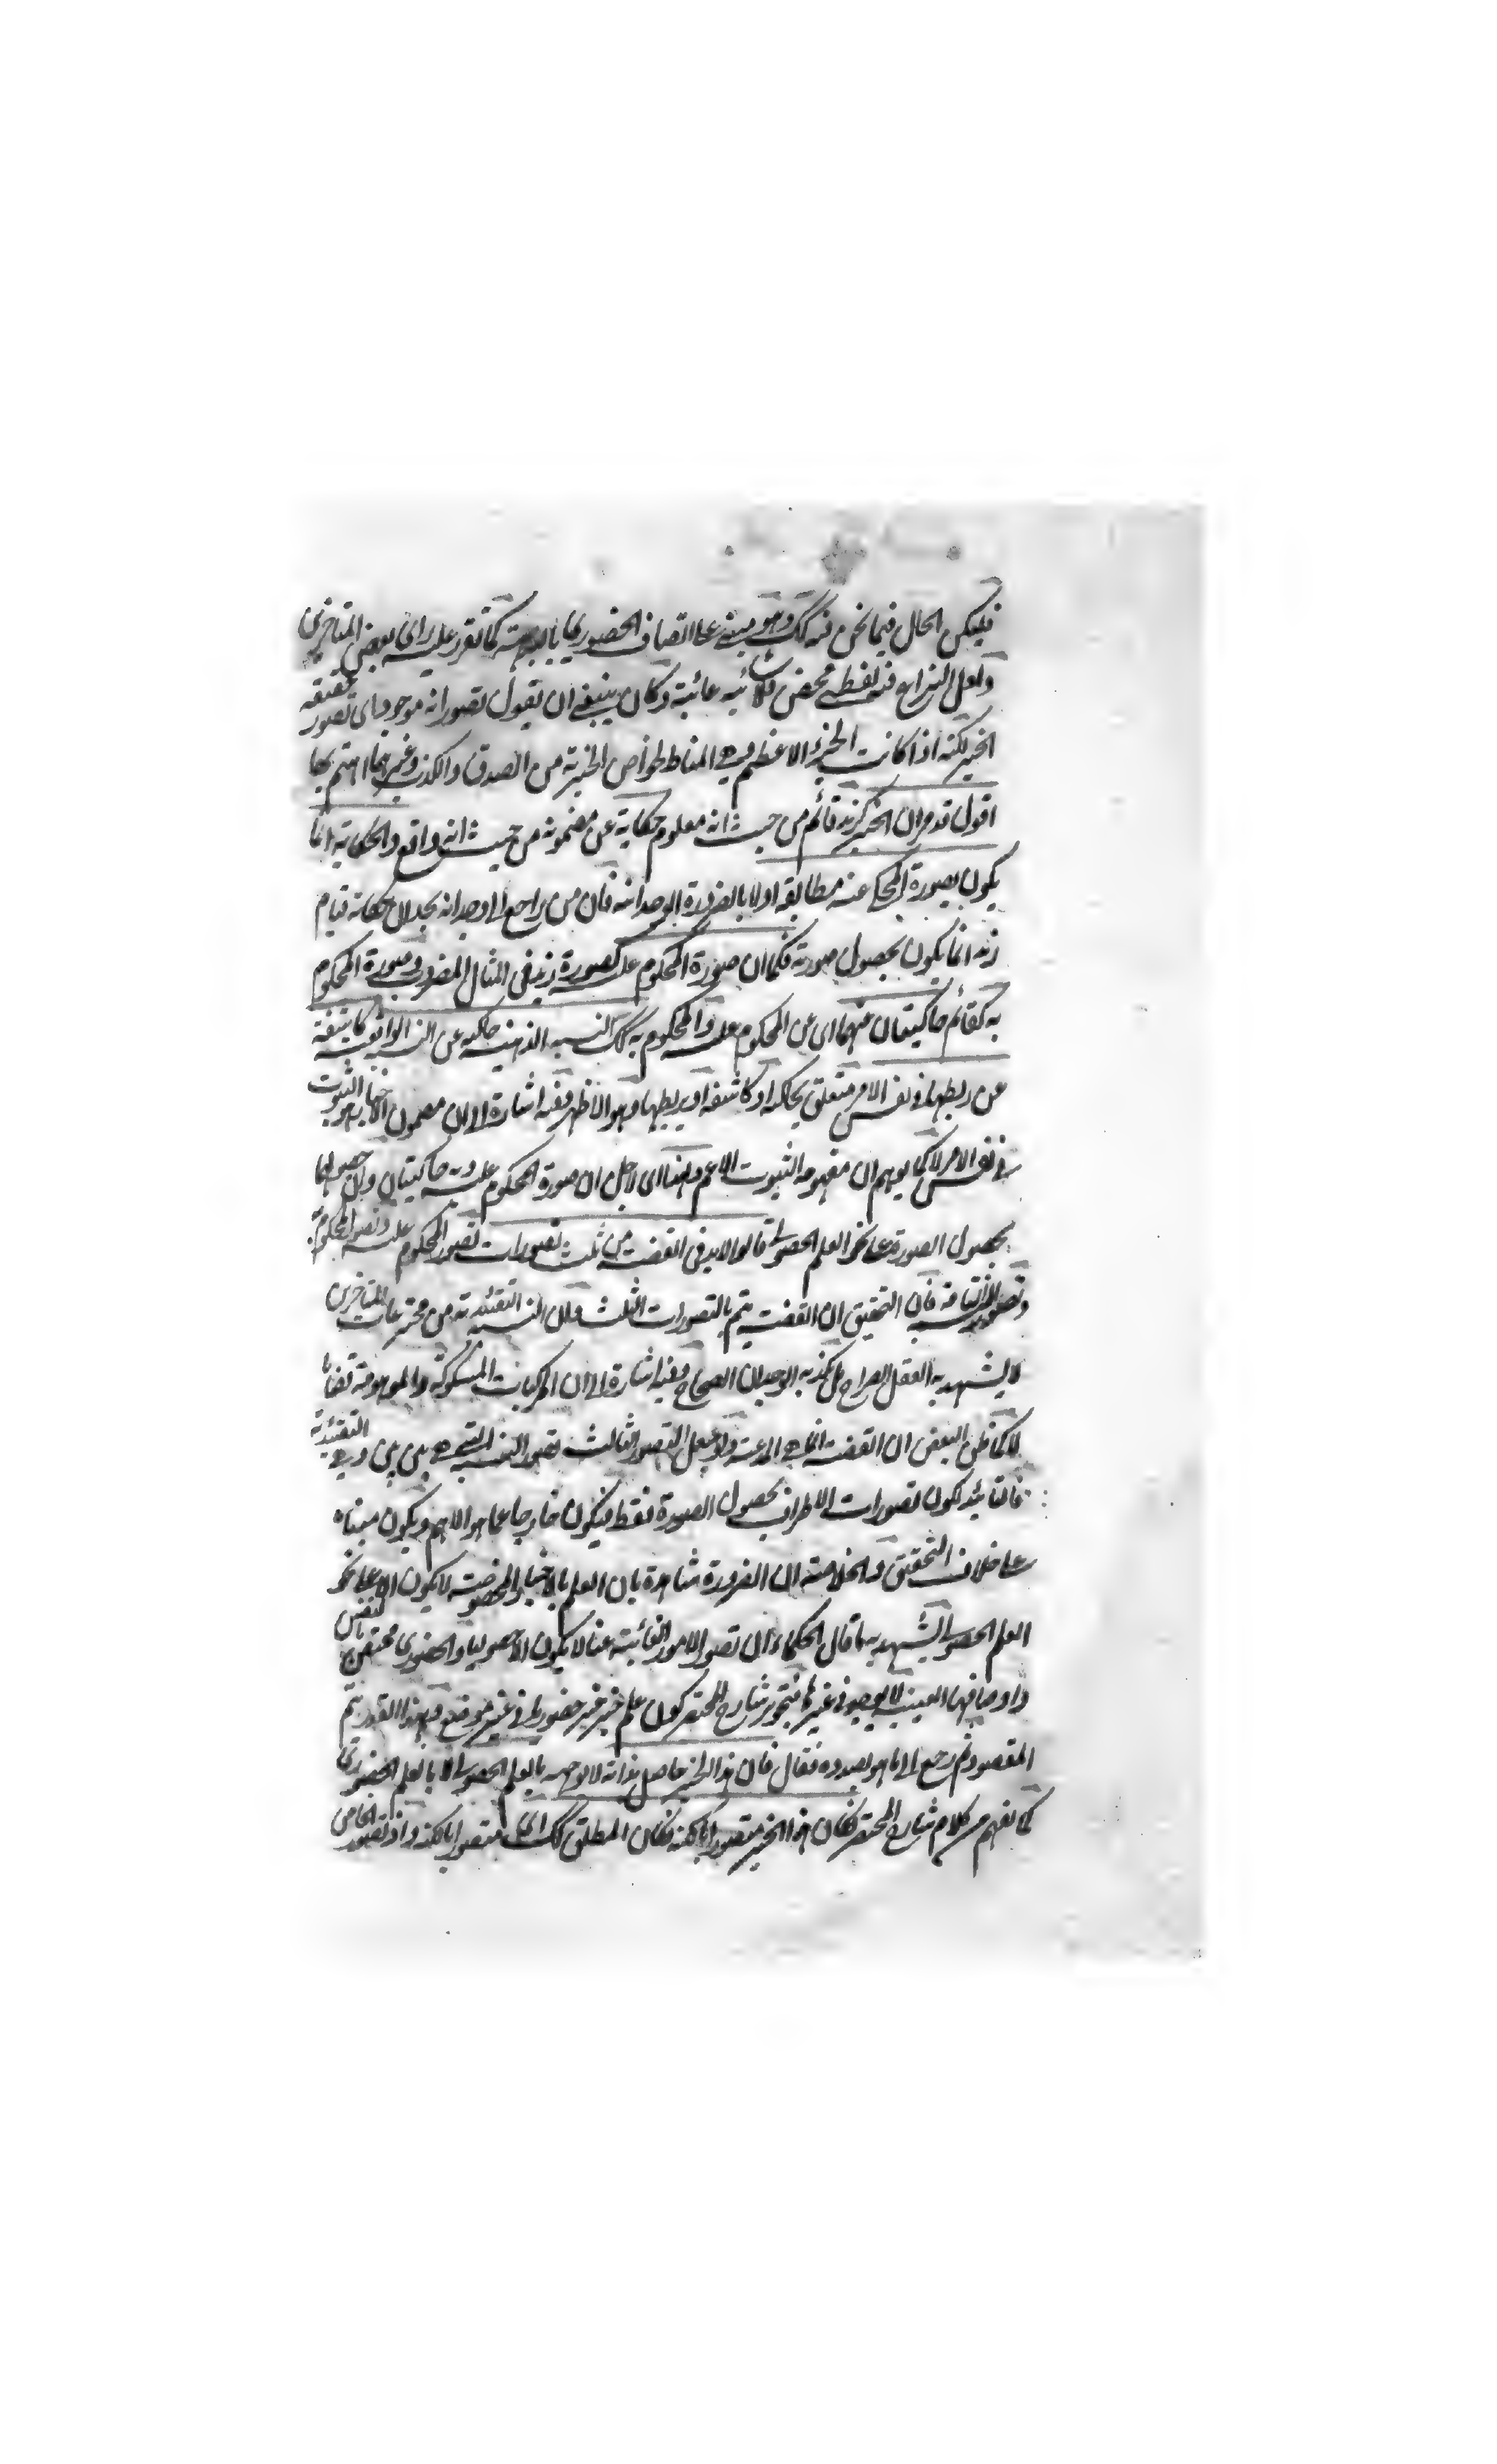 فليكن الحال فيما نحن فيه كك وهو مبني على اتصاف الحضوري بالبديهة كما تقرر عليه راى بعض المتاخرين
ولعل النزاع فيه لفظي محض فلا عائبة وكان ينبغي ان يقول تصور انه موجود اى تصور حقيقة
الخبر لكنه اذا كانت الجزء الاعظم وهي المناط لخواص الخبرية من الصدق والكذب وغيرهما اهتم بها
اقول قد مر ان الخبر كزيد قائم من حيث انه معلوم حكاية عن مضمونه من حيث انه واقع والحكاية انما
يكون بصورة المحكي عنه مطابقة اولا بالضرورة الوجدانية فان من راجع الى وجدانه يجد ان حكاية قيام
زيد انما يكون بحصول صورته فكما ان صورة المحكوم عليه كصورة زيد في المثال المضروب وصورة المحكوم
به كقائم حاكيتان عنهما اى عن المحكوم عليه والمحكوم به كك النسبة الذهنية حاكية عن النسبة الواقعية كاشفة
عن ربطهما في نفس الامر متعلق بحاكية او كاشفة او بربطهما وهو الاظهر وفيه اشارة الى ان مضمون الاخبار هو الثبوت
في نفس الامر لا كما يوهم ان مفهومه الثبوت الاعم ولهذا اى لاجل ان صورة المحكوم عليه وبه حاكيتان وان حصولهما
بحصول الصورة على نحو العلم الحصولي قالوا لابد في القضية من ثلث تصورات تصور المحكوم عليه وتصور المحكوم به
وتصور النسبة التامة فان التحقيق ان القضية يتم بالتصورات الثلث وان النسبة التقئيدية من مخترعات المتاخرين
لا يشهد به العقل الصراح بل يكذبه الوجدان الصحاح وفيه اشارة الى ان المركبات المشكوكة والموهومة قضايا
لا كما ظن البعض ان القضية انما هي المذعنة ولو جعل التصور الثالث تصور النسبة التي هي بين بين وهي التقئيدية
فالتائيد لكون تصورات الاطراف بحصول الصورة فقط فيكون خارجا عما هو الاهم ويكون مبناه
على خلاف التحقيق والخلاصة ان الضرورة شاهدة بان العلم بالاخبار المخصوصة لا يكون الا على نحو
العلم الحصولي يشهد به ما قال الحكماء ان تصور الامور الغائبة عنا لا يكون الا حصوليا والحضوري مختص بالنفس
واوصافها العينية لا يوجد في غيرها فتجويز شارح المختصر كون علم خبر خبر حضوريا في غير موضعه وبهذا القدر يتم
المقصود ثم رجع الى ما هو بصدده فقال فان هذا الخبر حاصل بذاته لا بوجهه بالعلم الحصولي لا بالعلم الحضوري
كما يفهم من كلام شارح المختصر فكان هذا الخبر متصورا بالكنه فكان المطلق كك اى متصورا بالكنه واذ تصور الخاص